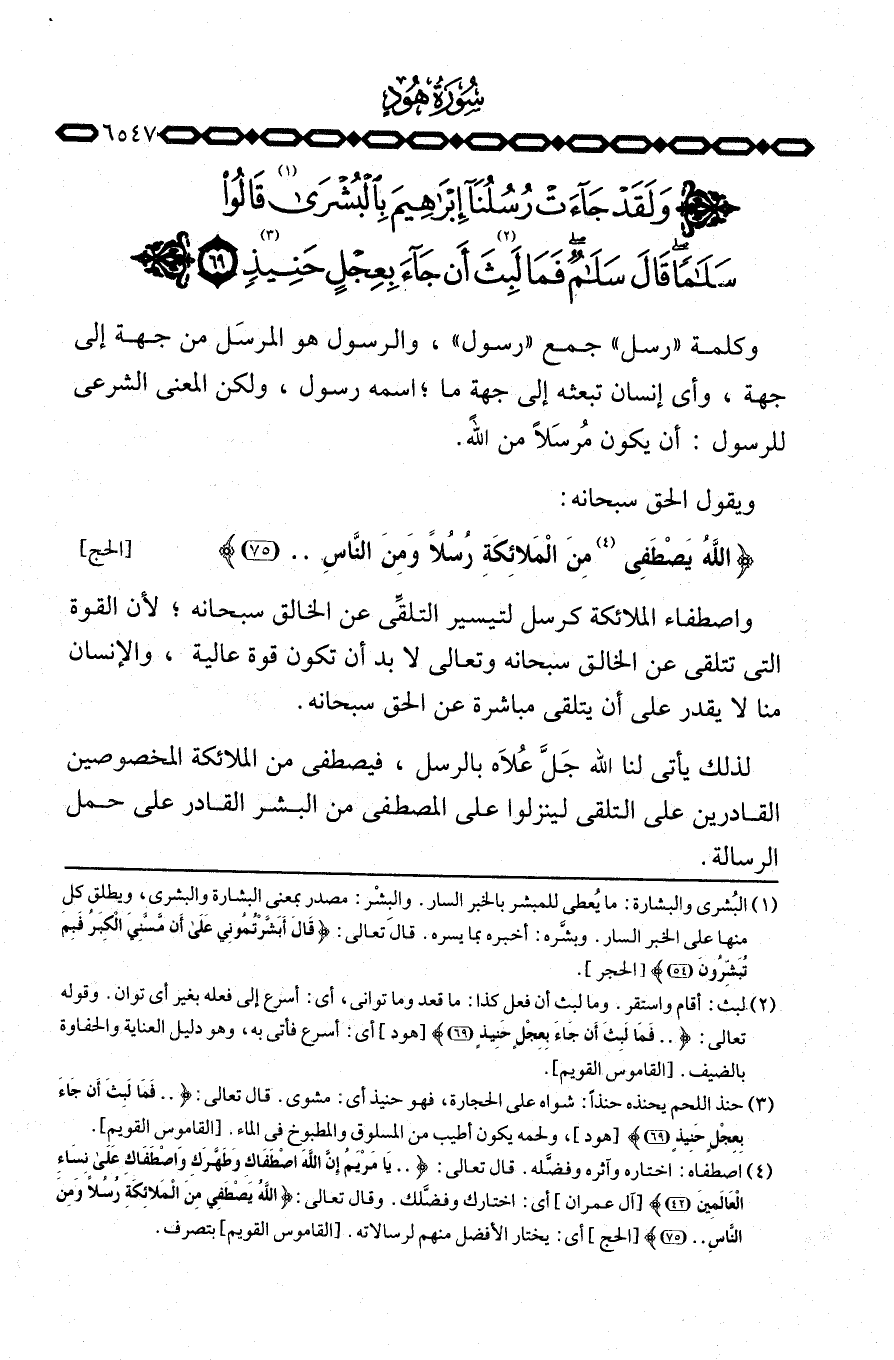 سُورَةُ هُودٍ
٦٥٤٧
وَلَقَدْ جَآءَتْ رُسُلُنَآ إِبْرَٰهِيمَ بِٱلْبُشْرَىٰ (١) قَالُوا۟
سَلَٰمًا ۖ قَالَ سَلَٰمٌ ۖ فَمَا لَبِثَ (٢) أَن جَآءَ بِعِجْلٍ حَنِيذٍ (٣) ٦٩
وكلمـة «رسل» جـمـع «رسول» ، والـرسـول هو المرسَل من جـهـة إلى
جهة ، وأى إنسان تبعثه إلى جهة ما ؛اسمه رسول ، ولكن المعنى الشرعى
للرسول : أن يكون مُرسَلاً من الله.
ويقول الحق سبحانه:
﴿ اللَّهُ يَصْطَفِى (٤) مِنَ الْمَلائِكَةِ رُسُلاً وَمِنَ النَّاسِ .. (٧٥) ﴾ [الحج]
واصطفاء الملائكة كرسل لتيسير التلقِّى عن الخالق سبحانه ؛ لأن القوة
التى تتلقى عن الخالق سبحانه وتعالى لا بد أن تكون قوة عالية ، والإنسان
منا لا يقدر على أن يتلقى مباشرة عن الحق سبحانه.
لذلك يأتى لنا الله جَلَّ عُلاَه بالرسل ، فيصطفى من الملائكة المخصوصين
القـادرين على التلقى لينزلوا على المصطفى من البـشـر القـادر على حـمل
الرسالة .
(١) البُشرى والبشارة : ما يُعطى للمبشر بالخبر السار . والبشْر : مصدر بمعنى البشارة والبشرى، ويطلق كل
منهـا على الخبر السار . وبشَّره : أخبره بما يسره . قال تعالى : ﴿ قَالَ أَبَشَّرْتُمُونِي عَلَىٰ أَن مَّسَّنِيَ الْكِبَرُ فَبِمَ
تُبَشِّرُونَ (٥٤) ﴾ [الحجر].
(٢) لبث : أقام واستقر . وما لبث أن فعل كذا : ما قعد وما توانى، أى : أسرع إلى فعله بغير أى توان . وقوله
تعالى : ﴿ .. فَمَا لَبِثَ أَن جَاءَ بِعِجْلٍ حَنِيذٍ (٦٩) ﴾ [هود] أى : أسرع فأتى به، وهو دليل العناية والحفاوة
بالضيف . [القاموس القويم].
(٣) حنذ اللحم يحنذه حنذاً : شواه على الحجارة، فهو حنيذ أى : مشوى . قال تعالى : ﴿ .. فَمَا لَبِثَ أَن جَاءَ
بِعِجْلٍ حَنِيذٍ (٦٩) ﴾ [هود]، ولحمه يكون أطيب من المسلوق والمطبوخ فى الماء . [القاموس القويم].
(٤) اصطفاه : اختاره وآثره وفضله . قال تعالى : ﴿ .. يَا مَرْيَمُ إِنَّ اللَّهَ اصْطَفَاكِ وَطَهَّرَكِ وَاصْطَفَاكِ عَلَىٰ نِسَاءِ
الْعَالَمِينَ (٤٢) ﴾ [آل عمران] أى : اختارك وفضَّلك . وقال تعالى : ﴿ اللَّهُ يَصْطَفِي مِنَ الْمَلائِكَةِ رُسُلاً وَمِنَ
النَّاسِ .. (٧٥) ﴾ [الحج] أى : يختار الأفضل منهم لرسالاته . [القاموس القويم] بتصرف .